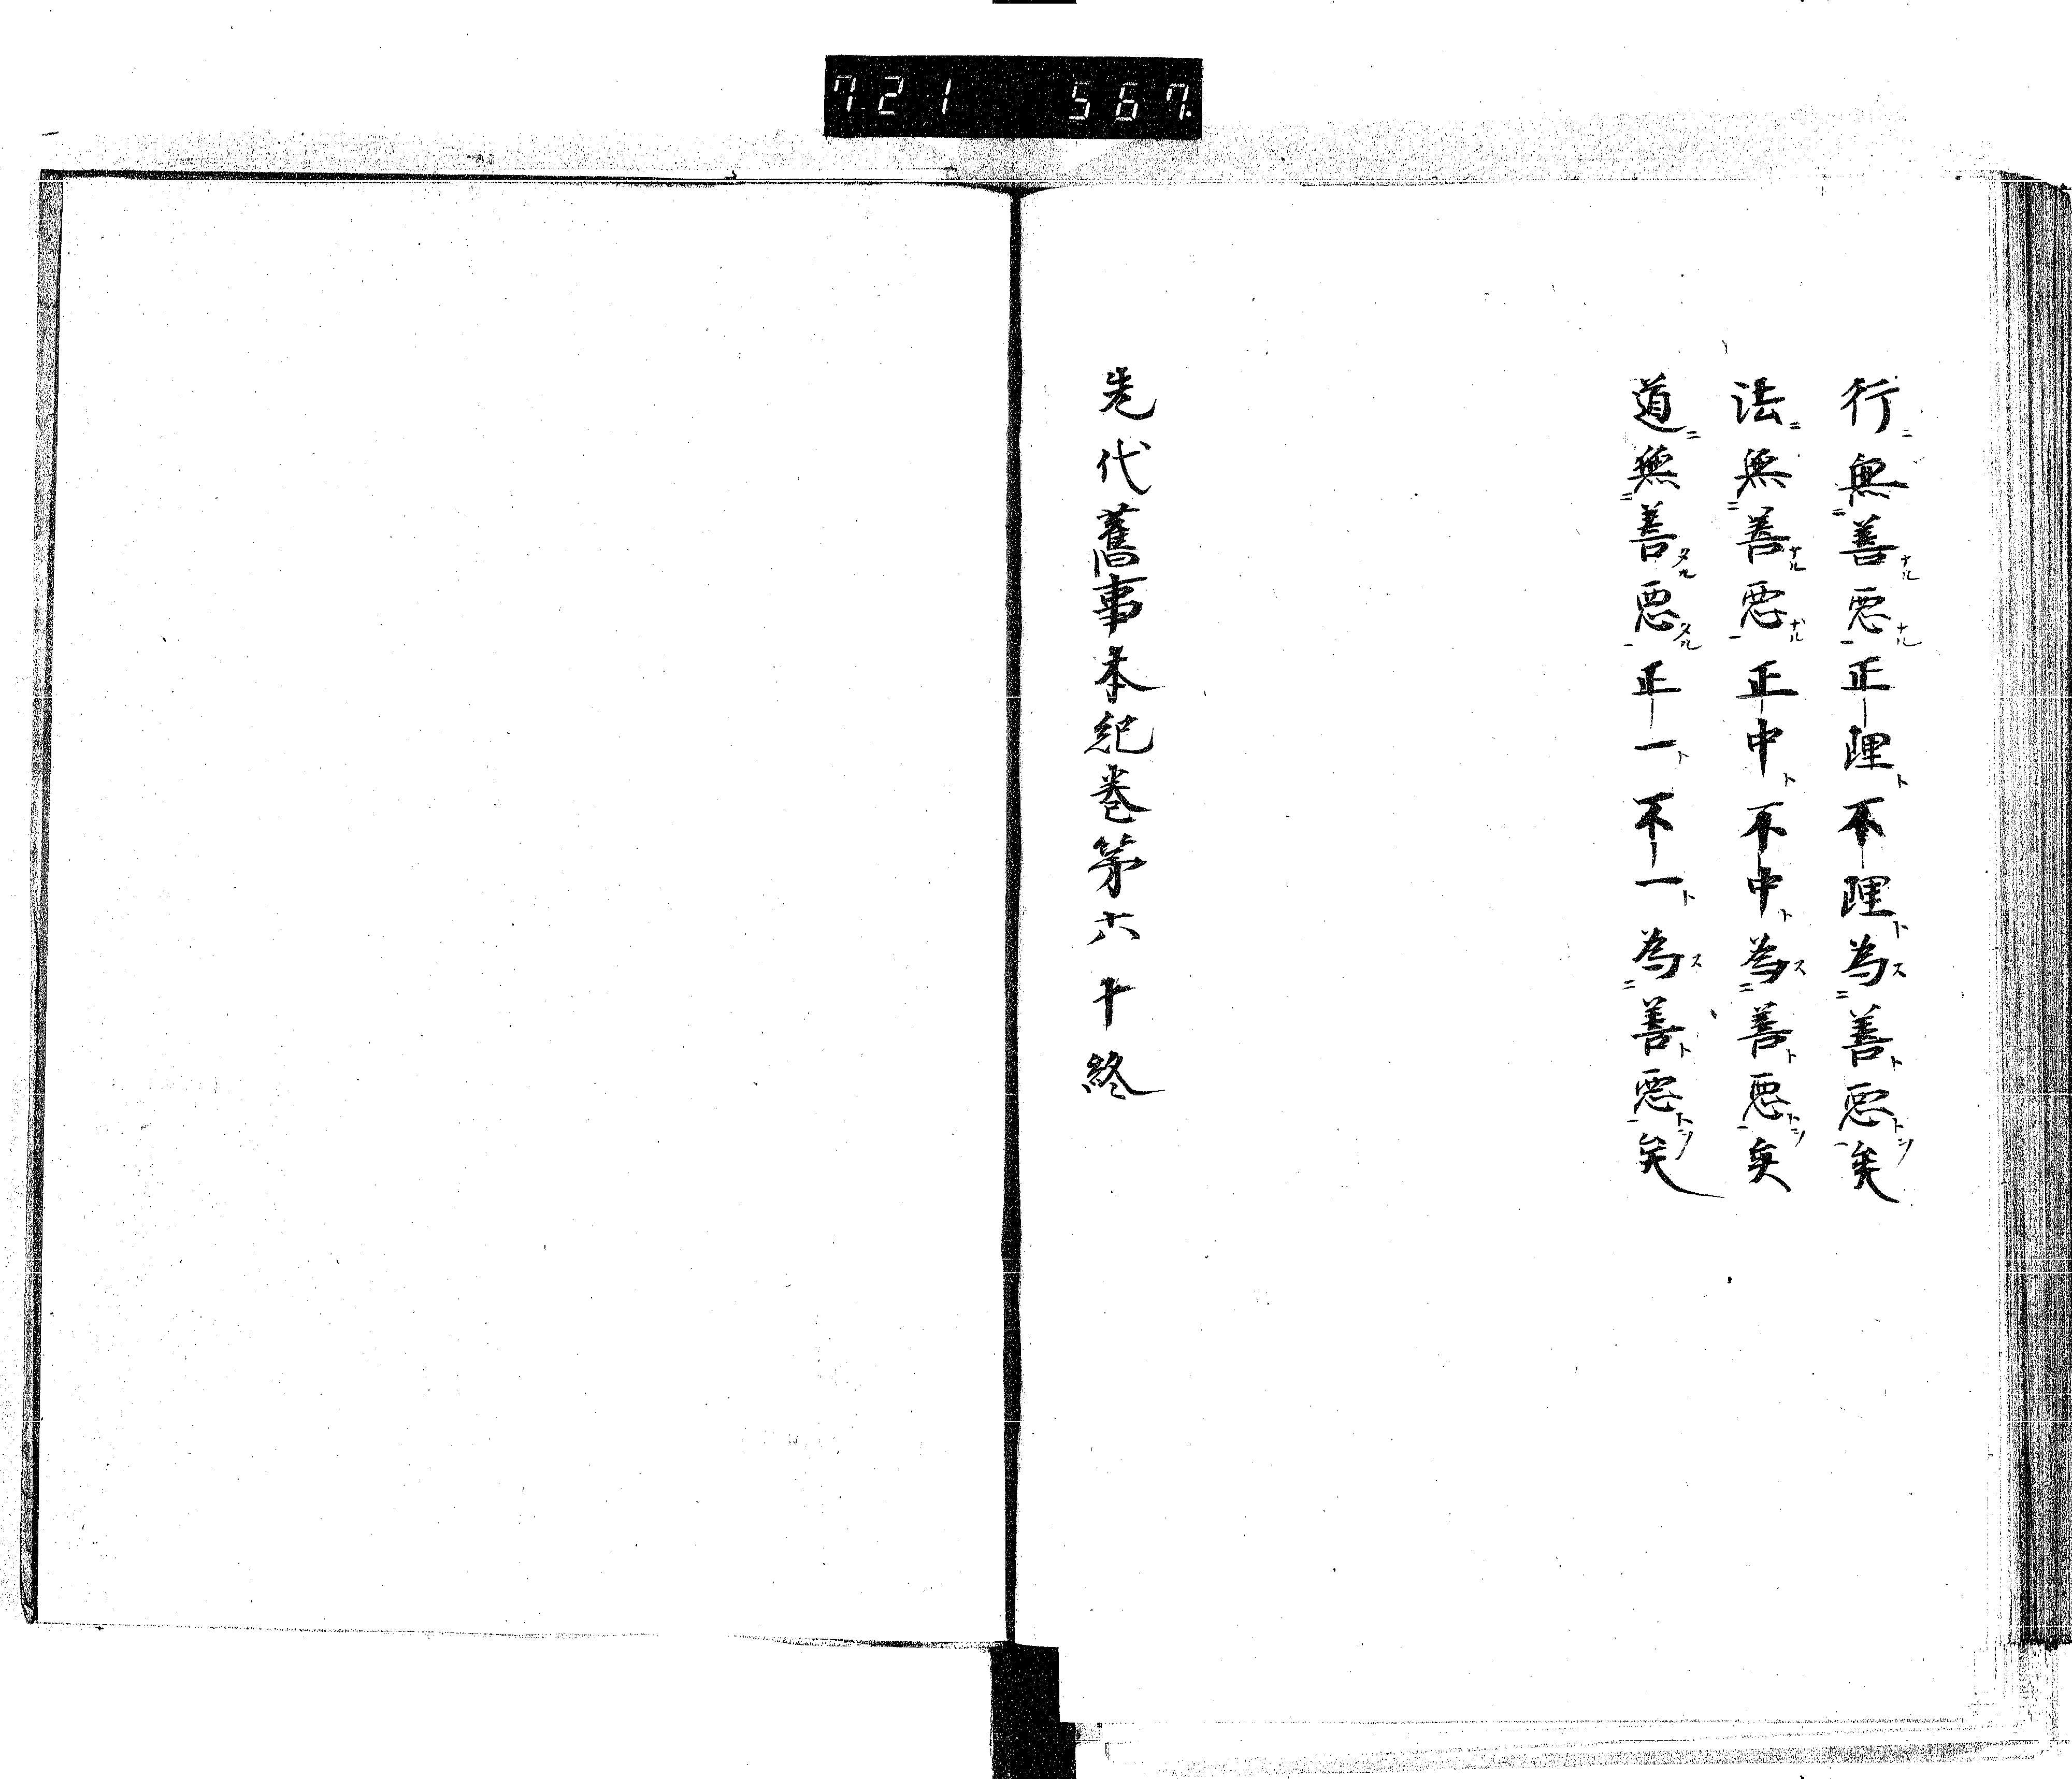 721 567.
行ニ無㆓善ナル悪ナル㆒正理ト不理ト為ス㆓善ト悪トシ㆒矣
法ニ無㆓善ナル悪ナル㆒正中ト不中ト為ス㆓善ト悪トシ㆒矣
道ニ無㆓善タル悪タル㆒正一ト不一ト為ス㆓善ト悪トシ㆒矣
先代舊事本紀巻第六十終